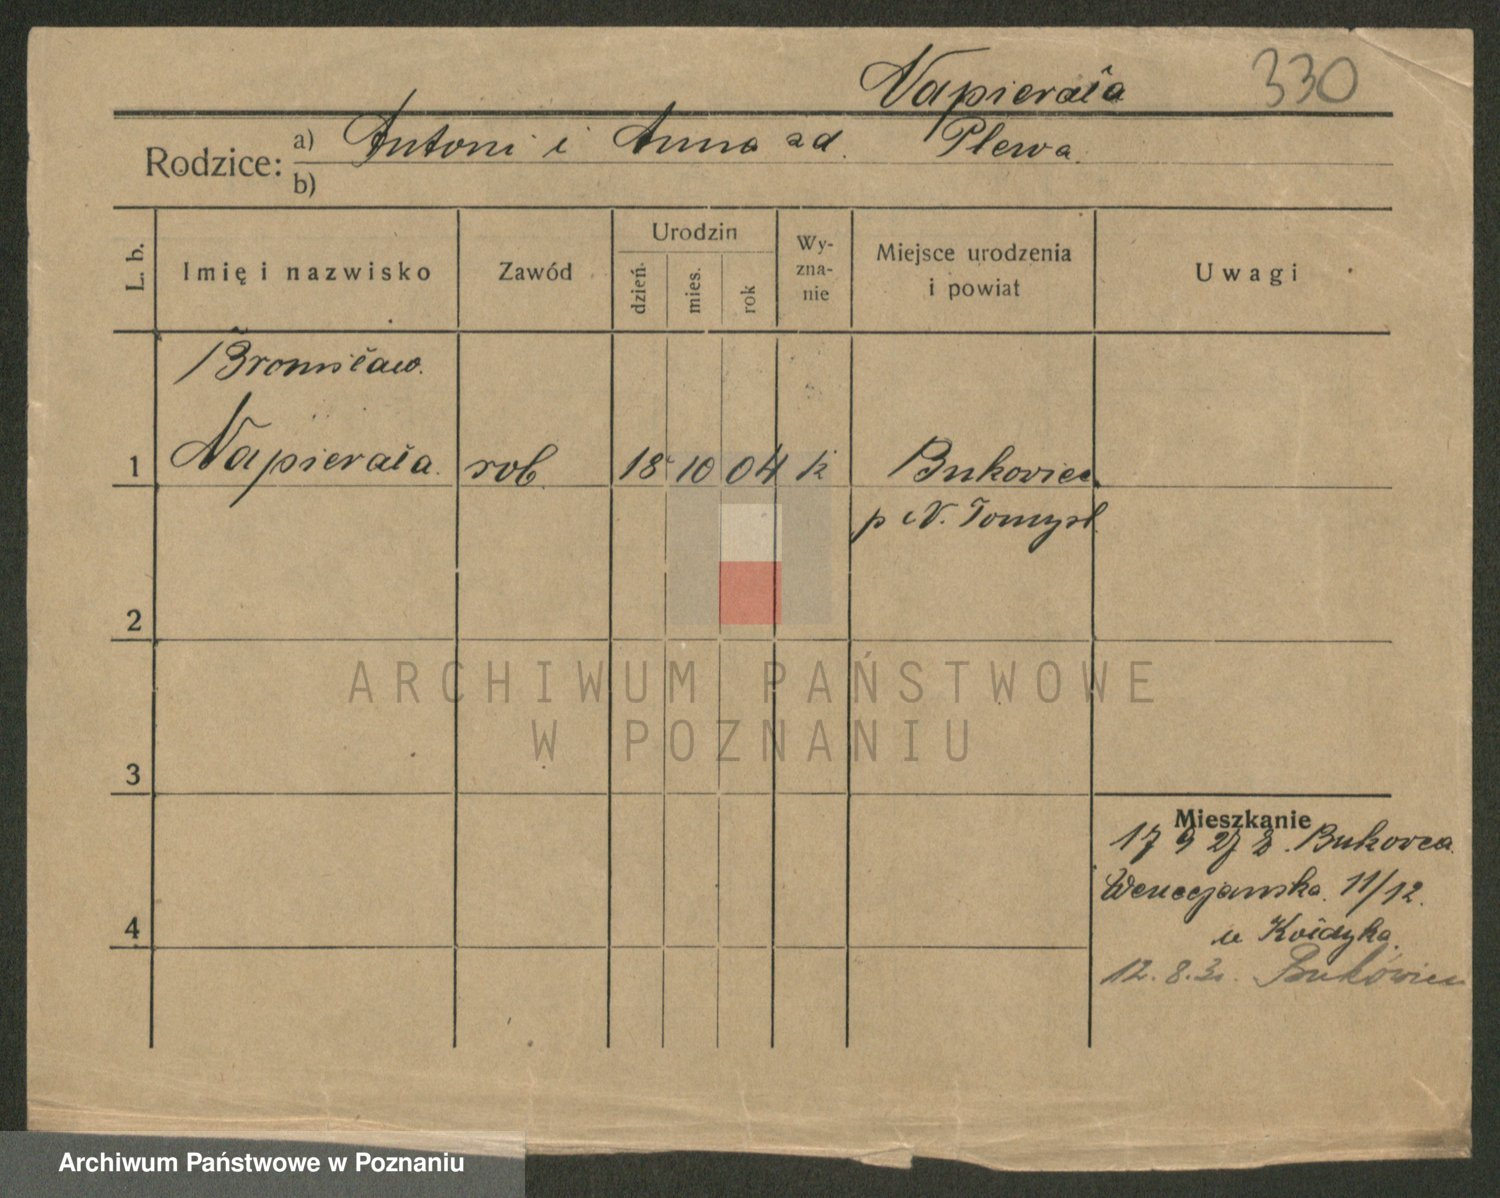 Napierała 330
Rodzice: a) Antoni i Anna zd. Plewa.
b)
L. b. Imię i nazwisko Zawód Urodzin dzień mies. rok Wy-zna-nie Miejsce urodzenia i powiat Uwagi
Bronisław.
1 Napierała. rob. 18 10 04 k Bukowiec
p N. Tomyśl.
2
ARCHIWUM PAŃSTWOWE
W POZNANIU
3
Mieszkanie
17 9 27 z Bukowca
Wenecjańska. 11/12.
4
u
12.8.31. Bukówiec
Archiwum Państwowe w Poznaniu